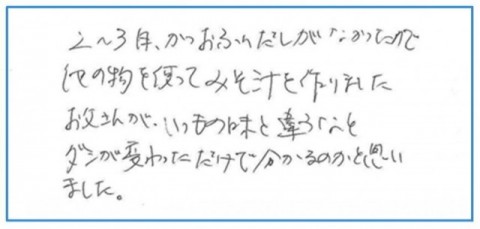 2〜3日、かつおふりだしがなかったので
他の物を使ってみそ汁を作りました
お父さんが、いつもの味と違うなと
ダシが変わっただけで分かるのかと思い
ました。